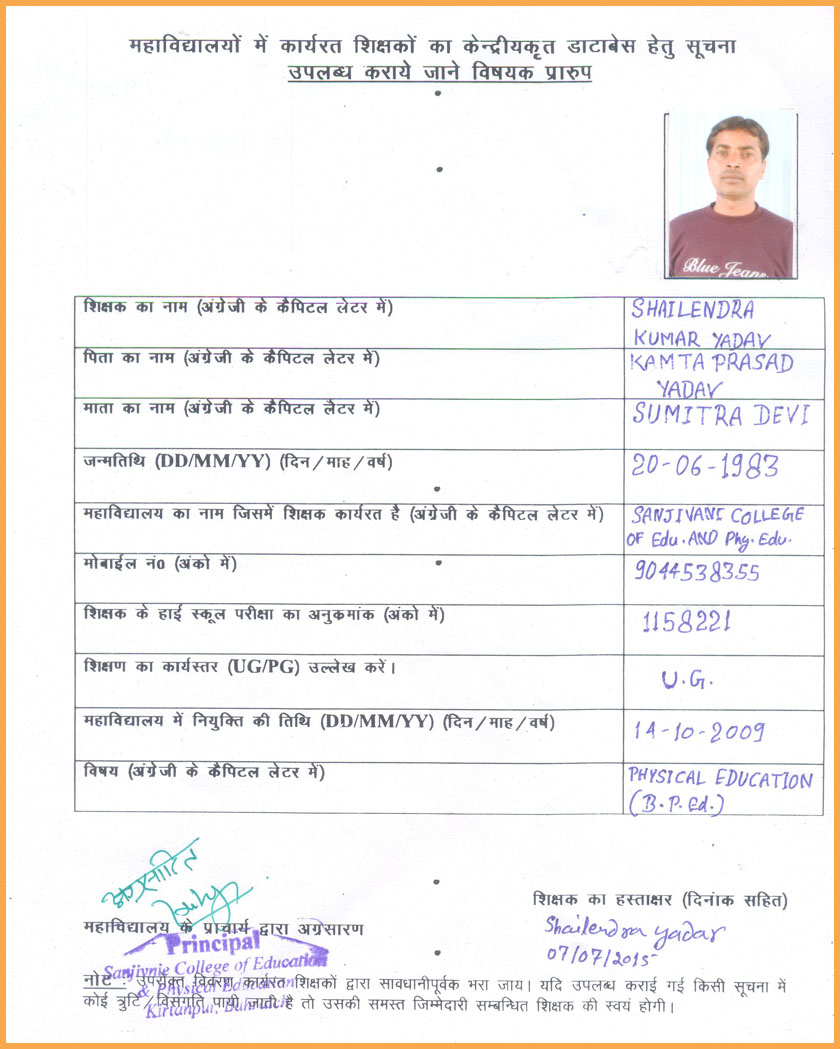 महाविद्यालयों में कार्यरत शिक्षकों का केन्द्रीयकृत डाटाबेस हेतु सूचना
उपलब्ध कराये जाने विषयक प्रारुप
Blue Jeans
शिक्षक का नाम (अंग्रेजी के कैपिटल लेटर में)
SHAILENDRA
KUMAR YADAV
पिता का नाम (अंग्रेजी के कैपिटल लेटर में)
KAMTA PRASAD
YADAV
माता का नाम (अंग्रेजी के कैपिटल लैटर में)
SUMITRA DEVI
जन्मतिथि (DD/MM/YY) (दिन/माह/वर्ष)
20-06-1983
महाविद्यालय का नाम जिसमें शिक्षक कार्यरत है (अंग्रेजी के कैपिटल लेटर में)
SANJIVANI COLLEGE
OF Edu. AND Phy. Edu.
मोबाईल नं0 (अंको में)
9044538355
शिक्षक के हाई स्कूल परीक्षा का अनुकमांक (अंको में)
1158221
शिक्षण का कार्यस्तर (UG/PG) उल्लेख करें।
U.G.
महाविद्यालय में नियुक्ति की तिथि (DD/MM/YY) (दिन/माह/वर्ष)
14-10-2009
विषय (अंग्रेजी के कैपिटल लेटर में)
PHYSICAL EDUCATION
(B.P.Ed.)
शिक्षक का हस्ताक्षर (दिनांक सहित)
महाविद्यालय के प्राचार्य द्वारा अग्रेसारण
Shailendra yadav
07/07/2015
Principal
Sanjivnie College of Education
& Physical Education
Kirtanpur, Bahraich
नोट : उपरोक्त विवरण कार्यरत शिक्षकों द्वारा सावधानीपूर्वक भरा जाय। यदि उपलब्ध कराई गई किसी सूचना में
कोई त्रुटि/विसंगति पायी जाती है तो उसकी समस्त जिम्मेदारी सम्बन्धित शिक्षक की स्वयं होगी।